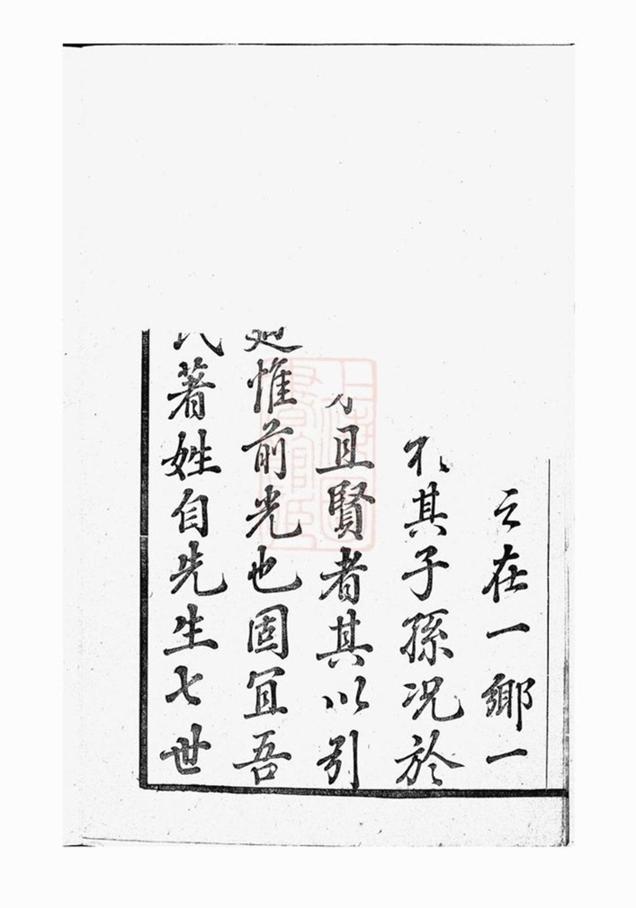 之在一鄉一
其子孫況於
且賢者其以引
惟前光也固宜吾
氏著姓自先生七世